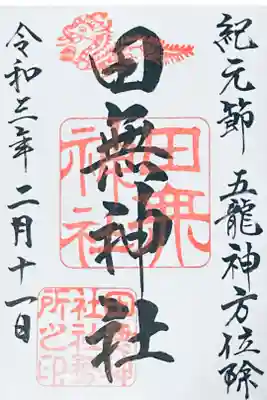 紀元節 五龍神方位除
田無神社
令和三年二月十一日
田無神社
田無神社社務所之印